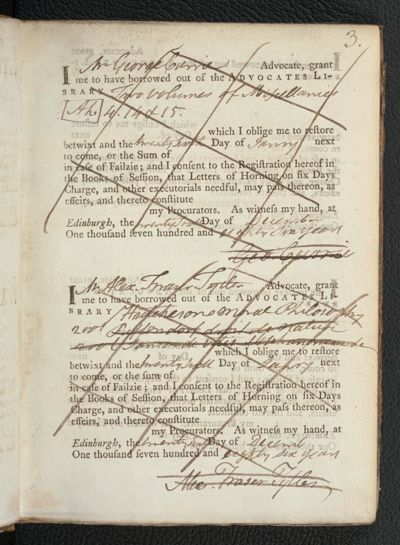 3.
I Mr George Currie Advocate, grant
me to have borrowed out of the ADVOCATES LI-
BRARY Two volumes of Miscellanies
[Ah] 4. 14 & 15.
which I oblige me to reſtore
betwixt and the Day of next
to come, or the Sum of
in caſe of Failzie; and I conſent to the Regiſtration hereof in
the Books of Seſſion, that Letters of Horning on ſix Days
Charge, and other executorials needful, may paſs thereon, as
effeirs, and thereto conſtitute
my Procurators. As witneſs my hand, at
Edinburgh, the Day of December
One thouſand ſeven hundred and eighty six years
Geo. Currie
I Mr Alex. Fraser Tytler Advocate, grant
me to have borrowed out of the ADVOCATES LI-
BRARY Hutcheson Moral Philosophy
Puffendorf
which I oblige me to reſtore
betwixt and the Day of next
to come, or the ſum of
in caſe of Failzie; and I conſent to the Regiſtration hereof in
the Books of Seſſion, that Letters of Horning on ſix Days
Charge, and other executorials needful, may paſs thereon, as
effeirs, and thereto conſtitute
my Procurators. As witneſs my hand, at
Edinburgh, the Day of
One thouſand ſeven hundred and eighty six years
Alex. Fraser Tytler